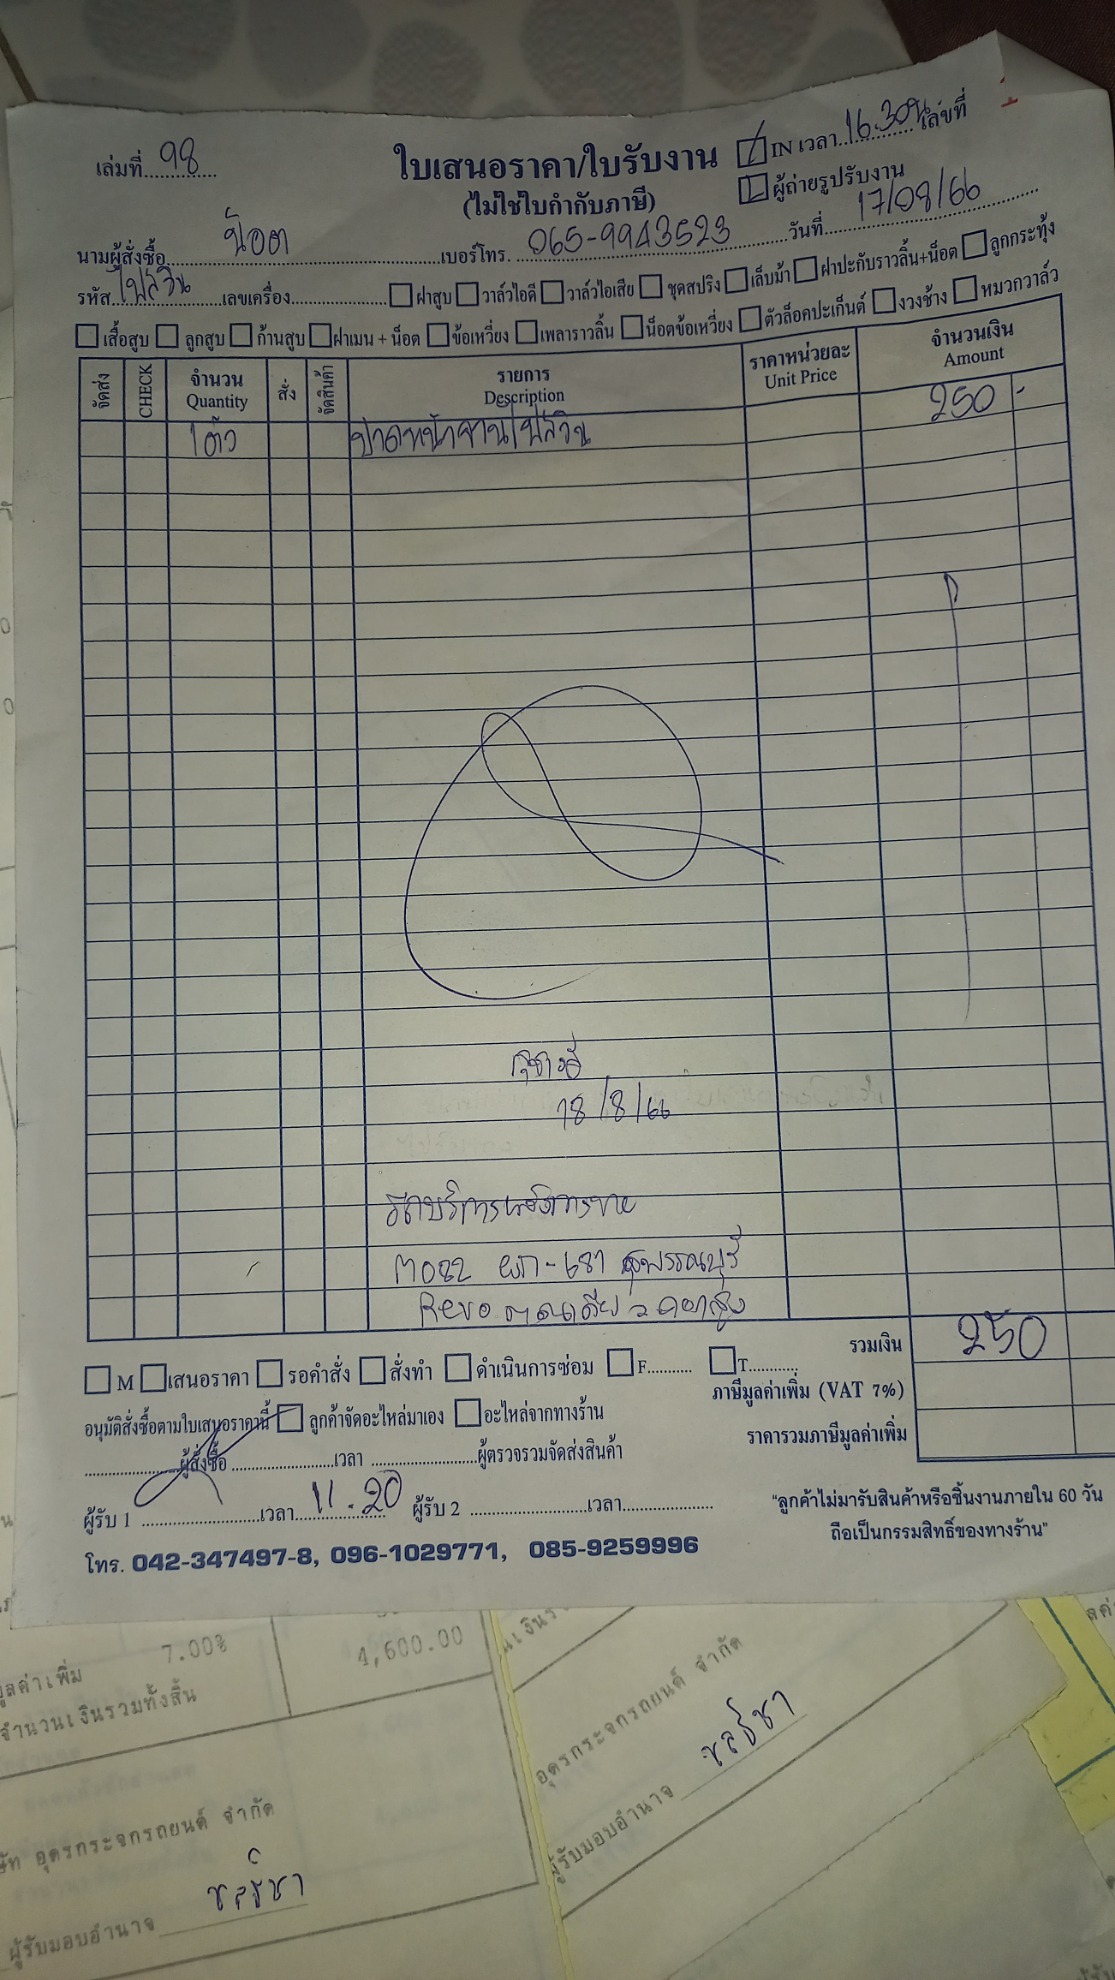 เล่มที่ 98
ใบเสนอราคา/ใบรับงาน
(ไม่ใช่ใบกำกับภาษี)
IN เวลา 16.30น เลขที่
ผู้ถ่ายรูปรับงาน
นามผู้สั่งซื้อ น๊อต เบอร์โทร. 065-9943523 วันที่ 17/08/66
รหัส ไฟล์วิน เลขเครื่อง ฝาสูบ วาล์วไอดี วาล์วไอเสีย ชุดสปริง เล็บม้า ฝาปะกับราวลิ้น+น็อต ลูกกระทุ้ง
เสื้อสูบ ลูกสูบ ก้านสูบ ฝาเมน + น็อต ข้อเหวี่ยง เพลาราวลิ้น น็อตข้อเหวี่ยง ตัวล็อคปะเก็นต์ งวงช้าง หมวกวาล์ว
จัดส่ง CHECK จำนวน Quantity สั่ง จัดสินค้า รายการ Description ราคาหน่วยละ Unit Price จำนวนเงิน Amount
1 ตัว ปาดหน้าจานไฟล์วิน 250 -
18/8/66
รถบริการหลังการขาย
681 สุพรรณบุรี
Revo
M เสนอราคา รอคำสั่ง สั่งทำ ดำเนินการซ่อม F T รวมเงิน 250
อนุมัติสั่งซื้อตามใบเสนอราคานี้ ลูกค้าจัดอะไหล่มาเอง อะไหล่จากทางร้าน ภาษีมูลค่าเพิ่ม (VAT 7%)
ผู้สั่งซื้อ เวลา ผู้ตรวจรวมจัดส่งสินค้า ราคารวมภาษีมูลค่าเพิ่ม
ผู้รับ 1 เวลา 11.20 ผู้รับ 2 เวลา
"ลูกค้าไม่มารับสินค้าหรือชิ้นงานภายใน 60 วัน
ถือเป็นกรรมสิทธิ์ของทางร้าน"
โทร. 042-347497-8, 096-1029771, 085-9259996
มูลค่าเพิ่ม 7.00% 4,600.00
จำนวนเงินรวมทั้งสิ้น
อุดรกระจกรถยนต์ จำกัด
ผู้รับมอบอำนาจ ชลธิชา
อุดรกระจกรถยนต์ จำกัด
ผู้รับมอบอำนาจ ชลธิชา